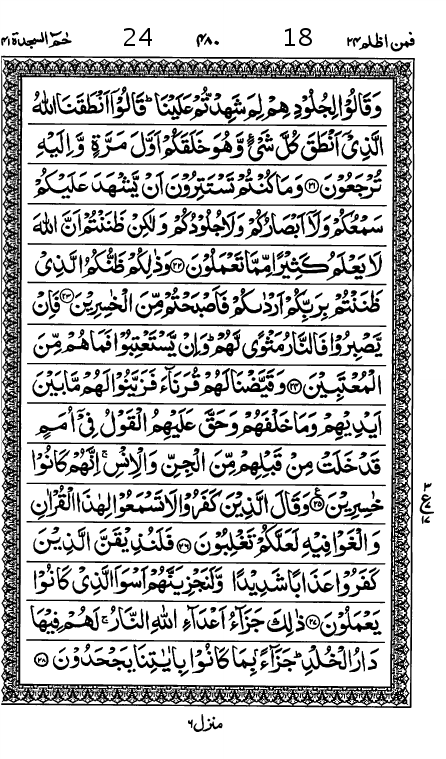 حٰمٓ السجدة ۴۱ 24 ۴۸۰ 18 فمن اظلم ۲۴
وَقَالُوْا لِجُلُوْدِهِمْ لِمَ شَهِدْتُّمْ عَلَيْنَا ؕ قَالُوْۤا اَنْطَقَنَا اللّٰهُ
الَّذِىْۤ اَنْطَقَ كُلَّ شَىْءٍ وَّهُوَ خَلَقَكُمْ اَوَّلَ مَرَّةٍ وَّاِلَيْهِ
تُرْجَعُوْنَ ﴿۲۱﴾ وَمَا كُنْتُمْ تَسْتَتِرُوْنَ اَنْ يَّشْهَدَ عَلَيْكُمْ
سَمْعُكُمْ وَلَاۤ اَبْصَارُكُمْ وَلَا جُلُوْدُكُمْ وَلٰكِنْ ظَنَنْتُمْ اَنَّ اللّٰهَ
لَا يَعْلَمُ كَثِيْرًا مِّمَّا تَعْمَلُوْنَ ﴿۲۲﴾ وَذٰلِكُمْ ظَنُّكُمُ الَّذِىْ
ظَنَنْتُمْ بِرَبِّكُمْ اَرْدٰٮكُمْ فَاَصْبَحْتُمْ مِّنَ الْخٰسِرِيْنَ ﴿۲۳﴾ فَاِنْ
يَّصْبِرُوْا فَالنَّارُ مَثْوًى لَّهُمْ ؕ وَاِنْ يَّسْتَعْتِبُوْا فَمَا هُمْ مِّنَ
الْمُعْتَبِيْنَ ﴿۲۴﴾ وَقَيَّضْنَا لَهُمْ قُرَنَآءَ فَزَيَّنُوْا لَهُمْ مَّا بَيْنَ
اَيْدِيْهِمْ وَمَا خَلْفَهُمْ وَحَقَّ عَلَيْهِمُ الْقَوْلُ فِىْۤ اُمَمٍ
قَدْ خَلَتْ مِنْ قَبْلِهِمْ مِّنَ الْجِنِّ وَالْاِنْسِ ۚ اِنَّهُمْ كَانُوْا
خٰسِرِيْنَ ﴿۲۵﴾ وَقَالَ الَّذِيْنَ كَفَرُوْا لَا تَسْمَعُوْا لِهٰذَا الْقُرْاٰنِ
وَالْغَوْا فِيْهِ لَعَلَّكُمْ تَغْلِبُوْنَ ﴿۲۶﴾ فَلَنُذِيْقَنَّ الَّذِيْنَ
كَفَرُوْا عَذَابًا شَدِيْدًا وَّلَنَجْزِيَنَّهُمْ اَسْوَاَ الَّذِىْ كَانُوْا
يَعْمَلُوْنَ ﴿۲۷﴾ ذٰلِكَ جَزَآءُ اَعْدَآءِ اللّٰهِ النَّارُ ۚ لَهُمْ فِيْهَا
دَارُ الْخُلْدِ ؕ جَزَآءًۢ بِمَا كَانُوْا بِاٰيٰتِنَا يَجْحَدُوْنَ ﴿۲۸﴾
منزل ۶